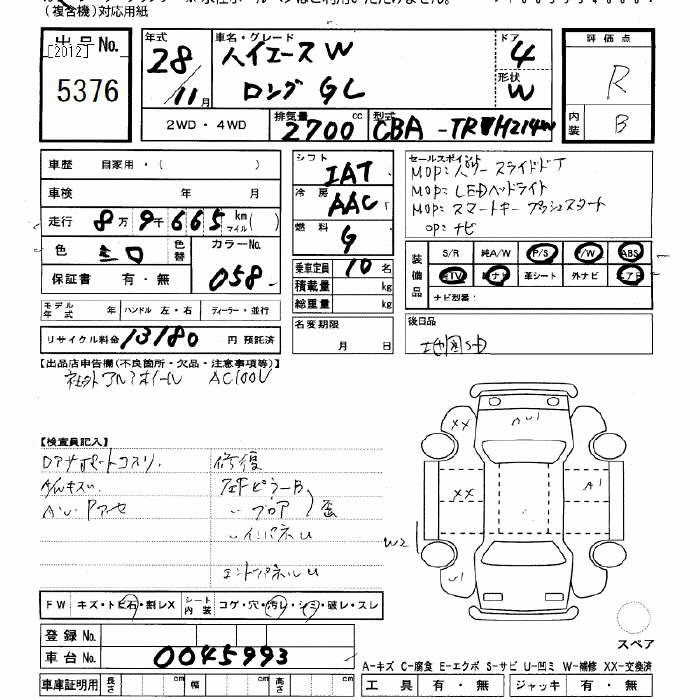 (複合機)対応用紙
出品No. 年式 車名・グレード ドア 評価点
[2012] 28 ハイエースW 4 R
5376 11月 ロングGL 形状 W 内装 B
2WD・4WD 排気量 2700 cc 型式 CBA-TRH214W
車歴 自家用・( )
シフト IAT
セールスポイント
MOP:パワースライドドア
車検 年 月
冷房 AAC
MOP:LEDヘッドライト
MOP:スマートキー プッシュスタート
走行 8万9千665 km マイル ( )
燃料 G
OP:ナビ
色 シロ 色替 カラーNo. 058
保証書 有・無
乗車定員 10名
積載量 kg
総重量 kg
装備品 S/R 純A/W P/S P/W ABS
TV ナビ 革シート 外ナビ エアB
ナビ型番:
モデル年式 年 ハンドル 左・右 ディーラー・並行
名変期限 月 日
後日品
地図SD
リサイクル料金 13180 円 預託済
【出品店申告欄(不良箇所・欠品・注意事項等)】
社外アルミホイール AC100V
【検査員記入】
DアナポートコスリL 修復
A/Wキズ
ピラーB
フロア 歪
インパネU
エンドパネルU
U1
XX XX A1
W2
U1
FW キズ・トビ石・割レX シート内装 コゲ・穴・汚レ・シミ・破レ・スレ
登録No.
車台No. 0045993
スペア
A-キズ C-腐食 E-エクボ S-サビ U-凹ミ W-補修 XX-交換済
車庫証明用 長さ cm 幅 cm 高さ cm
工具 有・無 ジャッキ 有・無